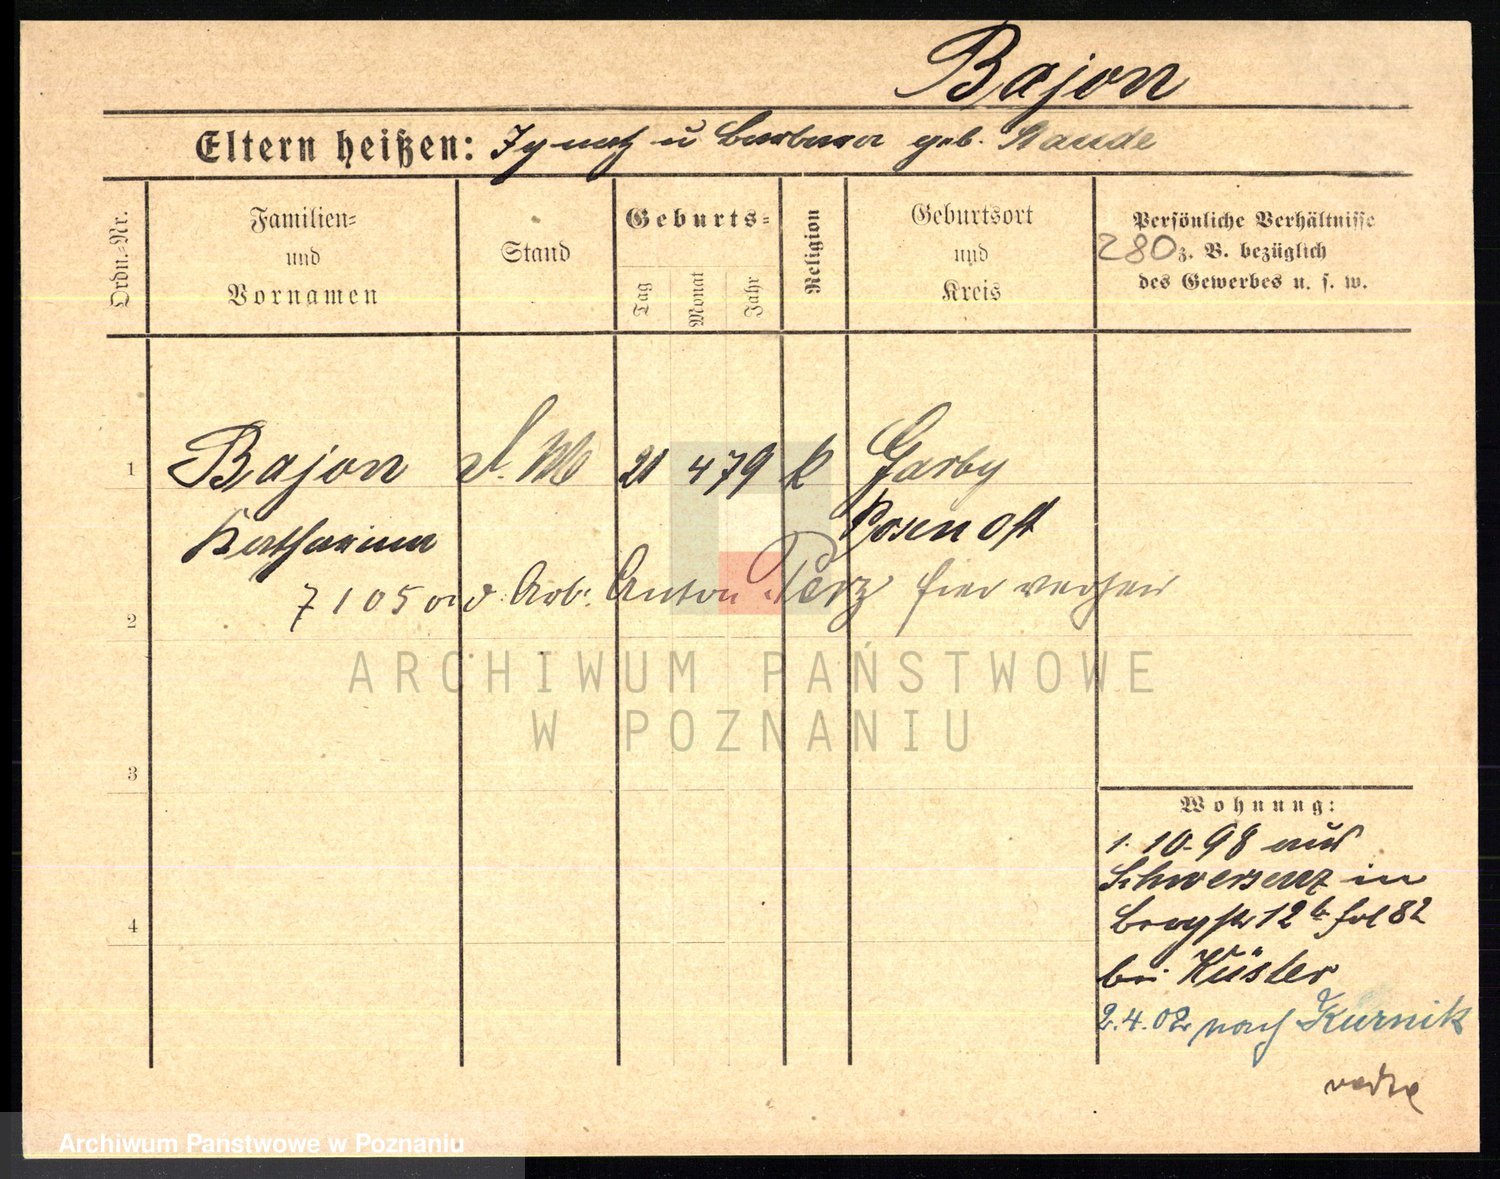 Bajon
Eltern heißen: Ignatz u Barbara geb. Staude
Ordn.-Nr.
Familien-
und
Vornamen
Stand
Geburts-
Tag
Monat
Jahr
Religion
Geburtsort
und
Kreis
Persönliche Verhältnisse
280 z. B. bezüglich
des Gewerbes u. s. w.
1 Bajon D. M 21 4 79 k Garby
Katharina Posen Ost
7 10 5 Arb. Anton Perz hier
2
ARCHIWUM PAŃSTWOWE
W POZNANIU
3
Wohnung:
1. 10. 98 aus
Schwersenz in
12 b fol 82
4
bei Küster
2. 4. 02 nach Kurnik
Archiwum Państwowe w Poznaniu